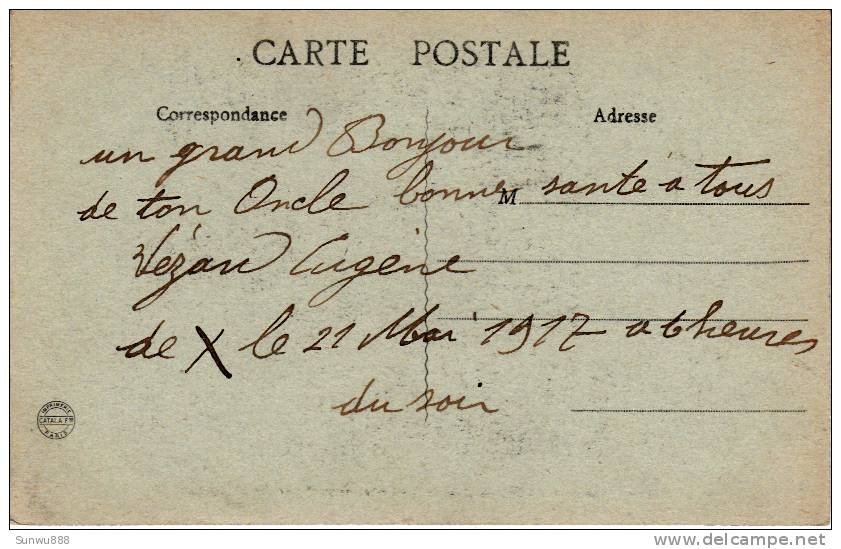 CARTE POSTALE
Correspondance
Adresse
un grand Bonjour
de ton Oncle bonne santé a tous
M
Vézard Eugène
de X le 21 Mai 1917 a 6 heures
du soir
IMPRIMERIE
CATALA FR
PARIS
Sunwu888
delcampe.net